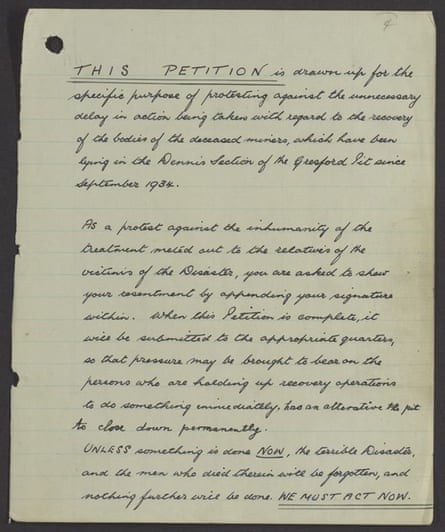 4
THIS PETITION is drawn up for the
specific purpose of protesting against the unnecessary
delay in action being taken with regard to the recovery
of the bodies of the deceased miners, which have been
lying in the Dennis Section of the Gresford Pit since
September 1934.
As a protest against the inhumanity of the
treatment meted out to the relatives of the
victims of the Disaster, you are asked to shew
your resentment by appending your signature
within. When this Petition is complete, it
will be submitted to the appropriate quarters,
so that pressure may be brought to bear on the
persons who are holding up recovery operations
to do something immediately, has an alterative the pit
to close down permanently.
UNLESS something is done NOW, the terrible Disaster,
and the men who died therein will be forgotten, and
nothing further will be done. WE MUST ACT NOW.